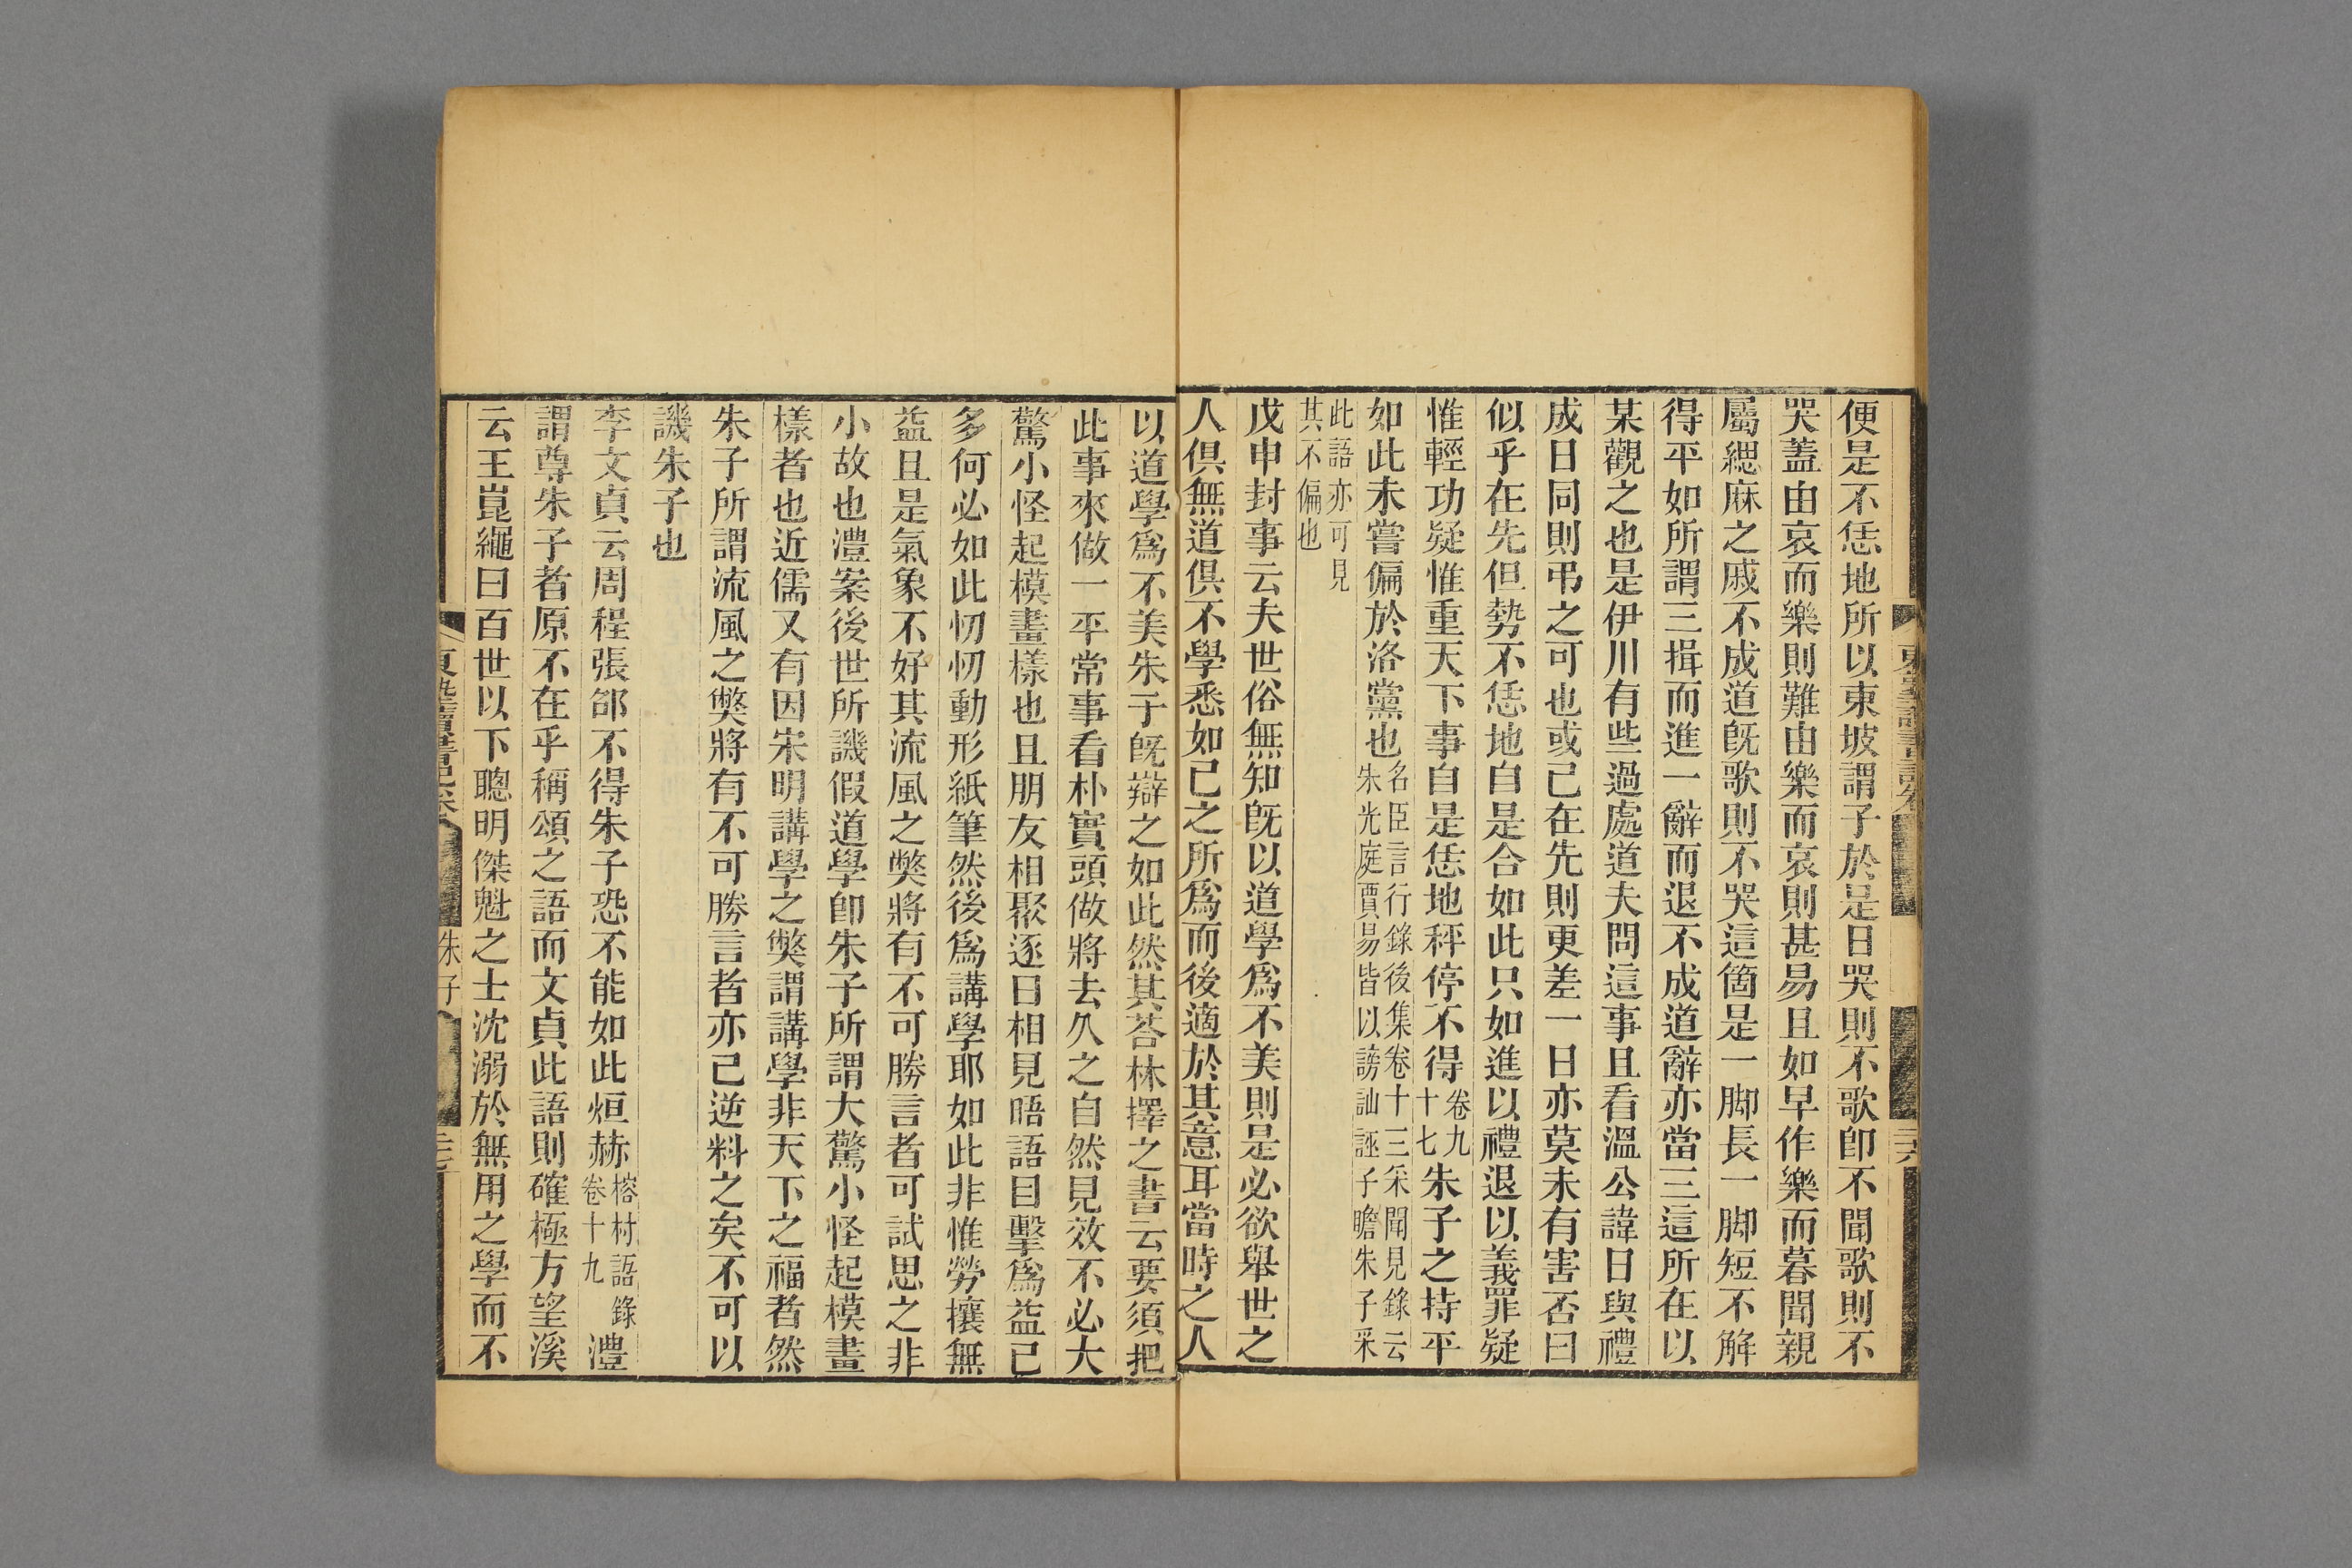 便是不恁地所以東坡謂子於是日哭則不歌卽不聞歌則不
哭蓋由哀而樂則難由樂而哀則甚易且如早作樂而暮聞親
屬緦麻之戚不成道旣歌則不哭這箇是一脚長一脚短不解
得平如所謂三揖而進一辭而退不成道辭亦當三這所在以
某觀之也是伊川有些過處道夫問這事且看溫公諱日與禮
成日同則弔之可也或已在先則更差一日亦莫未有害否曰
似乎在先但勢不恁地自是合如此只如進以禮退以義罪疑
惟輕功疑惟重天下事自是恁地秤停不得卷九十七朱子之持平
如此未嘗偏於洛黨也名臣言行錄後集卷十三采聞見錄云朱光庭賈易皆以謗訕誣子瞻朱子采
此語亦可見其不偏也
戊申封事云夫世俗無知旣以道學爲不美則是必欲舉世之
人俱無道俱不學悉如己之所爲而後適於其意耳當時之人
以道學爲不美朱子旣辯之如此然其荅林擇之書云要須把
此事來做一平常事看朴實頭做將去久之自然見效不必大
驚小怪起模畫樣也且朋友相聚逐日相見晤語目擊爲益已
多何必如此忉忉動形紙筆然後爲講學耶如此非惟勞攘無
益且是氣象不好其流風之獘將有不可勝言者可試思之非
小故也澧案後世所譏假道學卽朱子所謂大驚小怪起模畫
樣者也近儒又有因宋明講學之獘謂講學非天下之福者然
朱子所謂流風之獘將有不可勝言者亦已逆料之矣不可以
譏朱子也
李文貞云周程張邵不得朱子恐不能如此烜赫榕村語錄卷十九澧
謂尊朱子者原不在乎稱頌之語而文貞此語則確極方望溪
云王崑繩曰百世以下聰明傑魁之士沈溺於無用之學而不
朱子